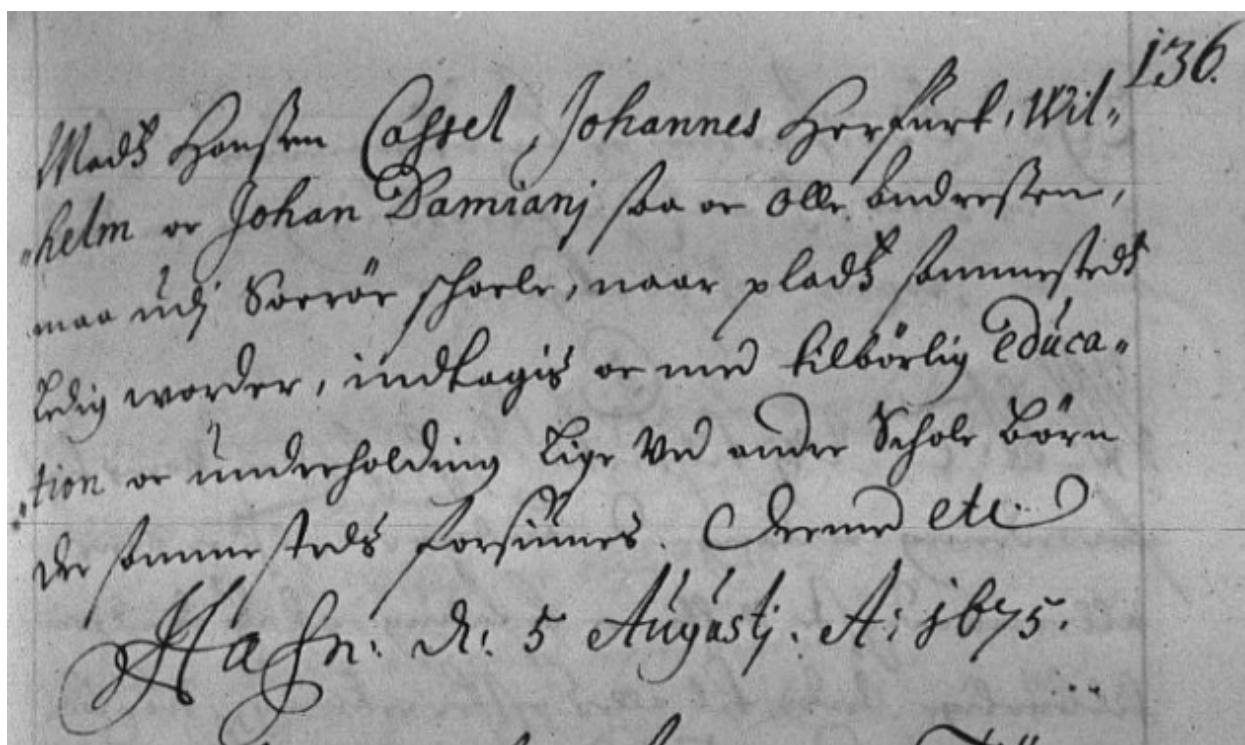 136.
Madß Hanßen Cassel, Johannes Herfurt, Wil-
helm oc Johan Damianj saa oc Olle Andreßen,
maa udj Soeröe schoele, naar pladß sammestedß
ledig worder, indtagis oc med tilbörlig educa-
tion oc underholding lige ved andre Schole Börn
der sammestedß forsiunes. Dermed etc
Hafn: d: 5 Augustj. A: 1675.